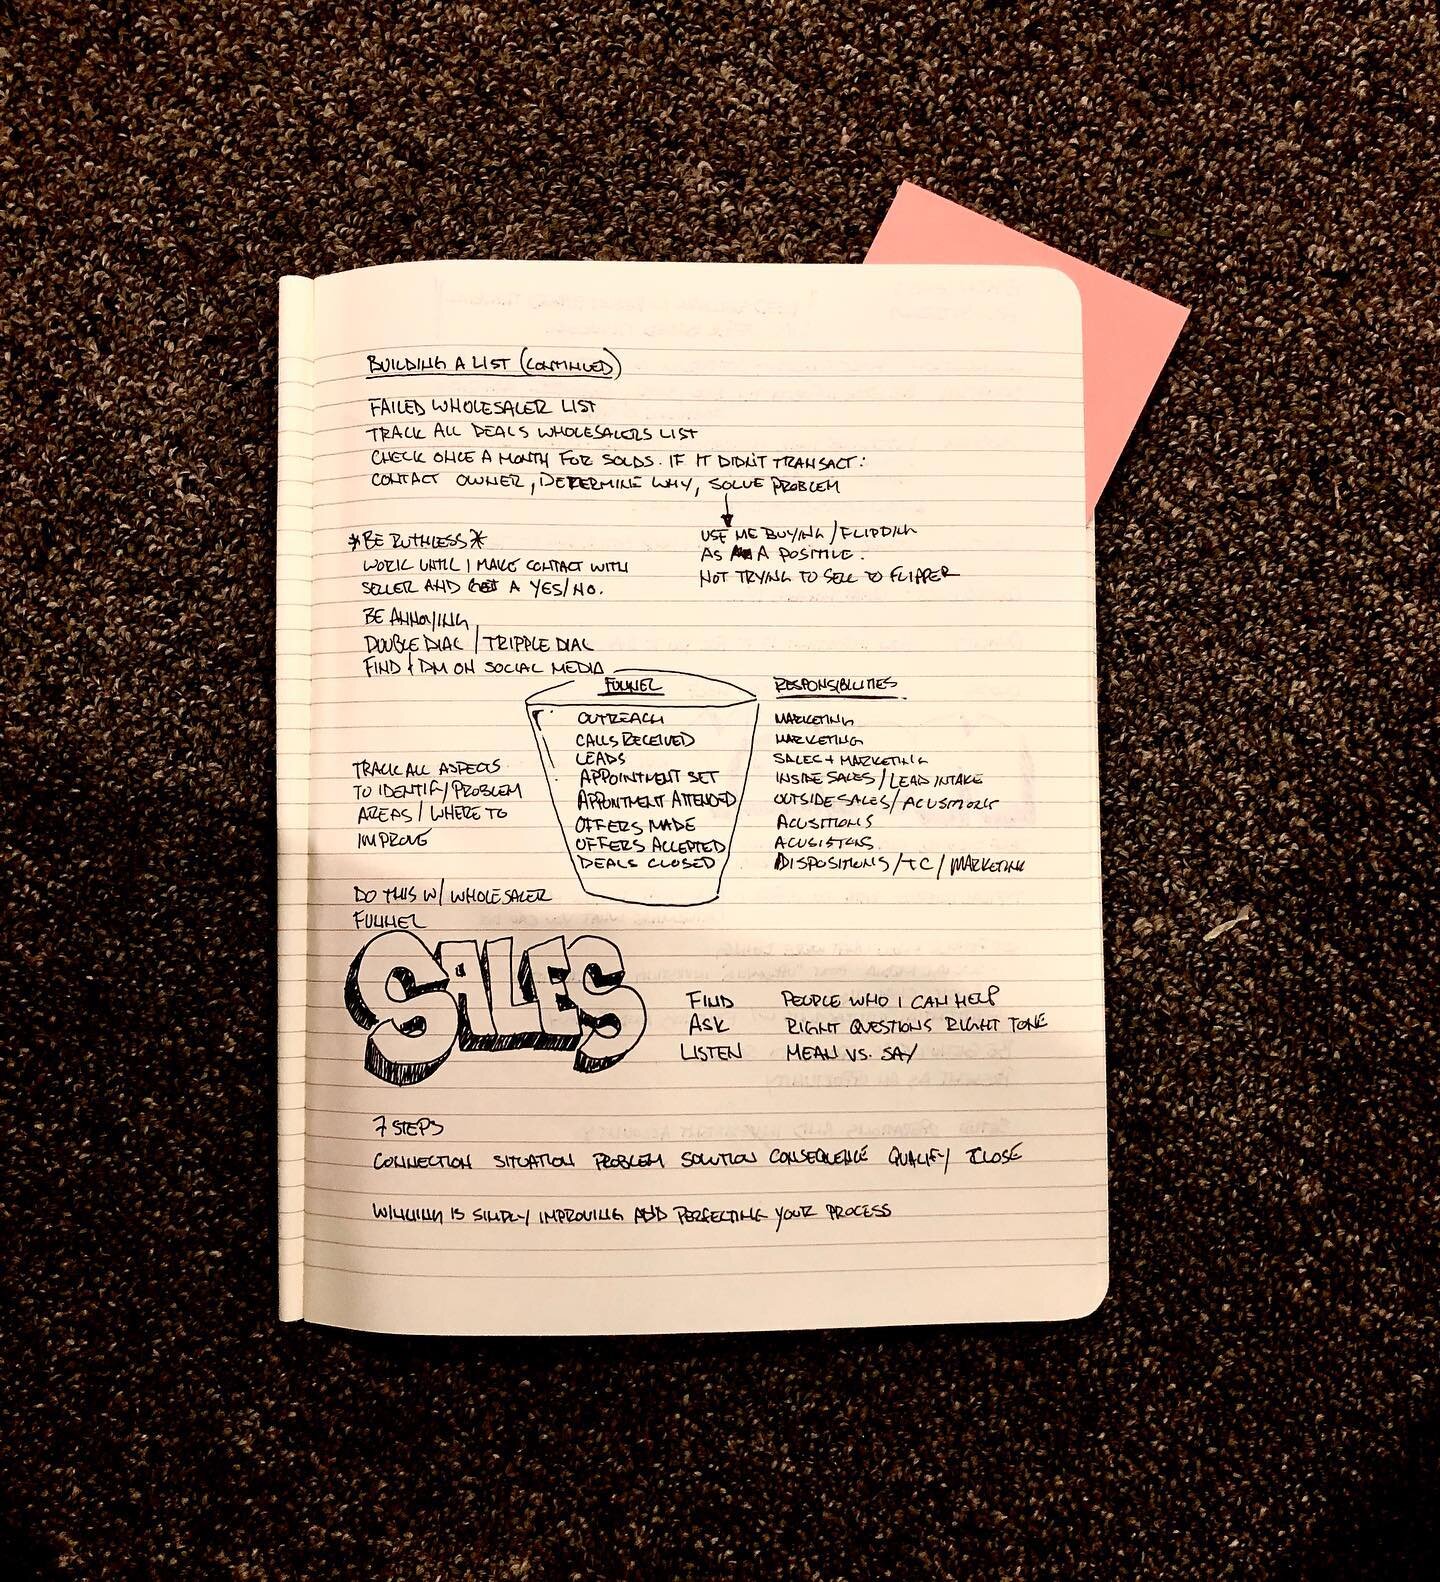 BUILDING A LIST (CONTINUED)
FAILED WHOLESALER LIST
TRACK ALL DEALS WHOLESALERS LIST
CHECK ONCE A MONTH FOR SOLDS. IF IT DIDN'T TRANSACT:
CONTACT OWNER, DETERMINE WHY, SOLVE PROBLEM
USE ME BUYING/FLIPPING
AS A POSITIVE.
NOT TRYING TO SELL TO FLIPPER
*BE RUTHLESS*
WORK UNTIL I MAKE CONTACT WITH
SELLER AND GET A YES/NO.
BE ANNOYING
DOUBLE DIAL / TRIPPLE DIAL
FIND & DM ON SOCIAL MEDIA
FUNNEL RESPONSIBILITIES
OUTREACH MARKETING
CALLS RECEIVED MARKETING
LEADS SALES + MARKETING
APPOINTMENT SET INSIDE SALES/LEAD INTAKE
APPOINTMENT ATTENDED OUTSIDE SALES/
OFFERS MADE ACUSITIONS
OFFERS ACCEPTED
DEALS CLOSED DISPOSITIONS/TC/MARKETING
TRACK ALL ASPECTS
TO IDENTIFY PROBLEM
AREAS / WHERE TO
IMPROVE
DO THIS W/ WHOLESALER
FUNNEL
SALES
FIND PEOPLE WHO I CAN HELP
ASK RIGHT QUESTIONS RIGHT TONE
LISTEN MEAN VS. SAY
7 STEPS
CONNECTION SITUATION PROBLEM SOLUTION CONSEQUENCE QUALIFY CLOSE
WINNING IS SIMPLY IMPROVING AND PERFECTING YOUR PROCESS